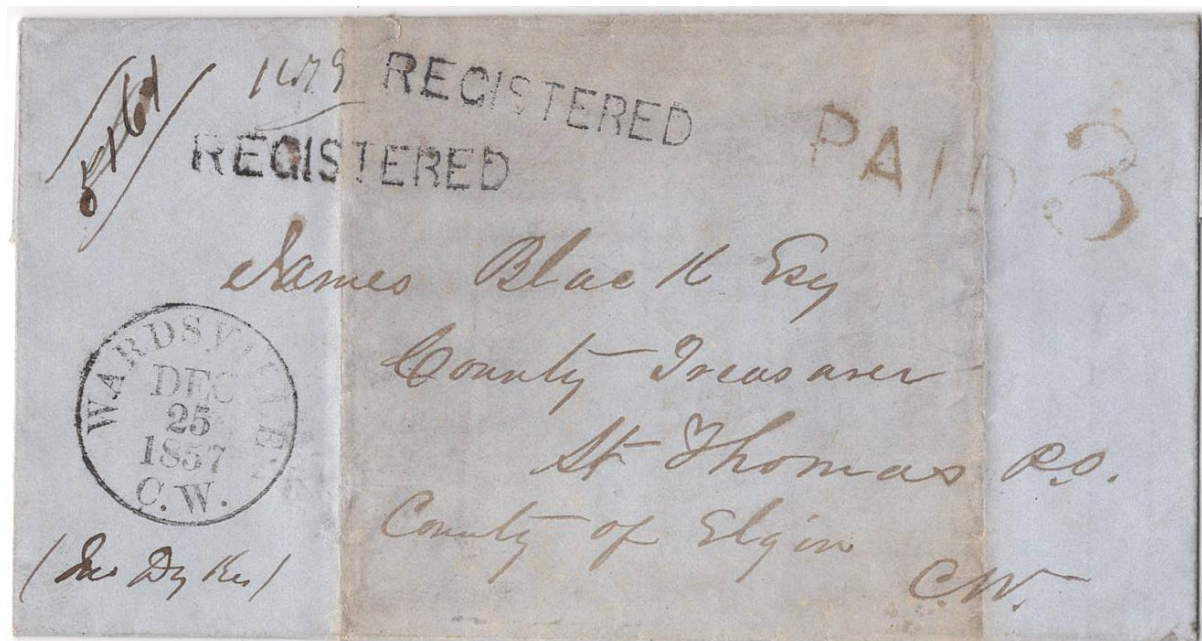 REGISTERED
REGISTERED
PAID 3
James Black Esq
County Treasurer
St Thomas P.O.
County of Elgin
C.W.
WARDSVILLE
DEC
25
1857
C.W.